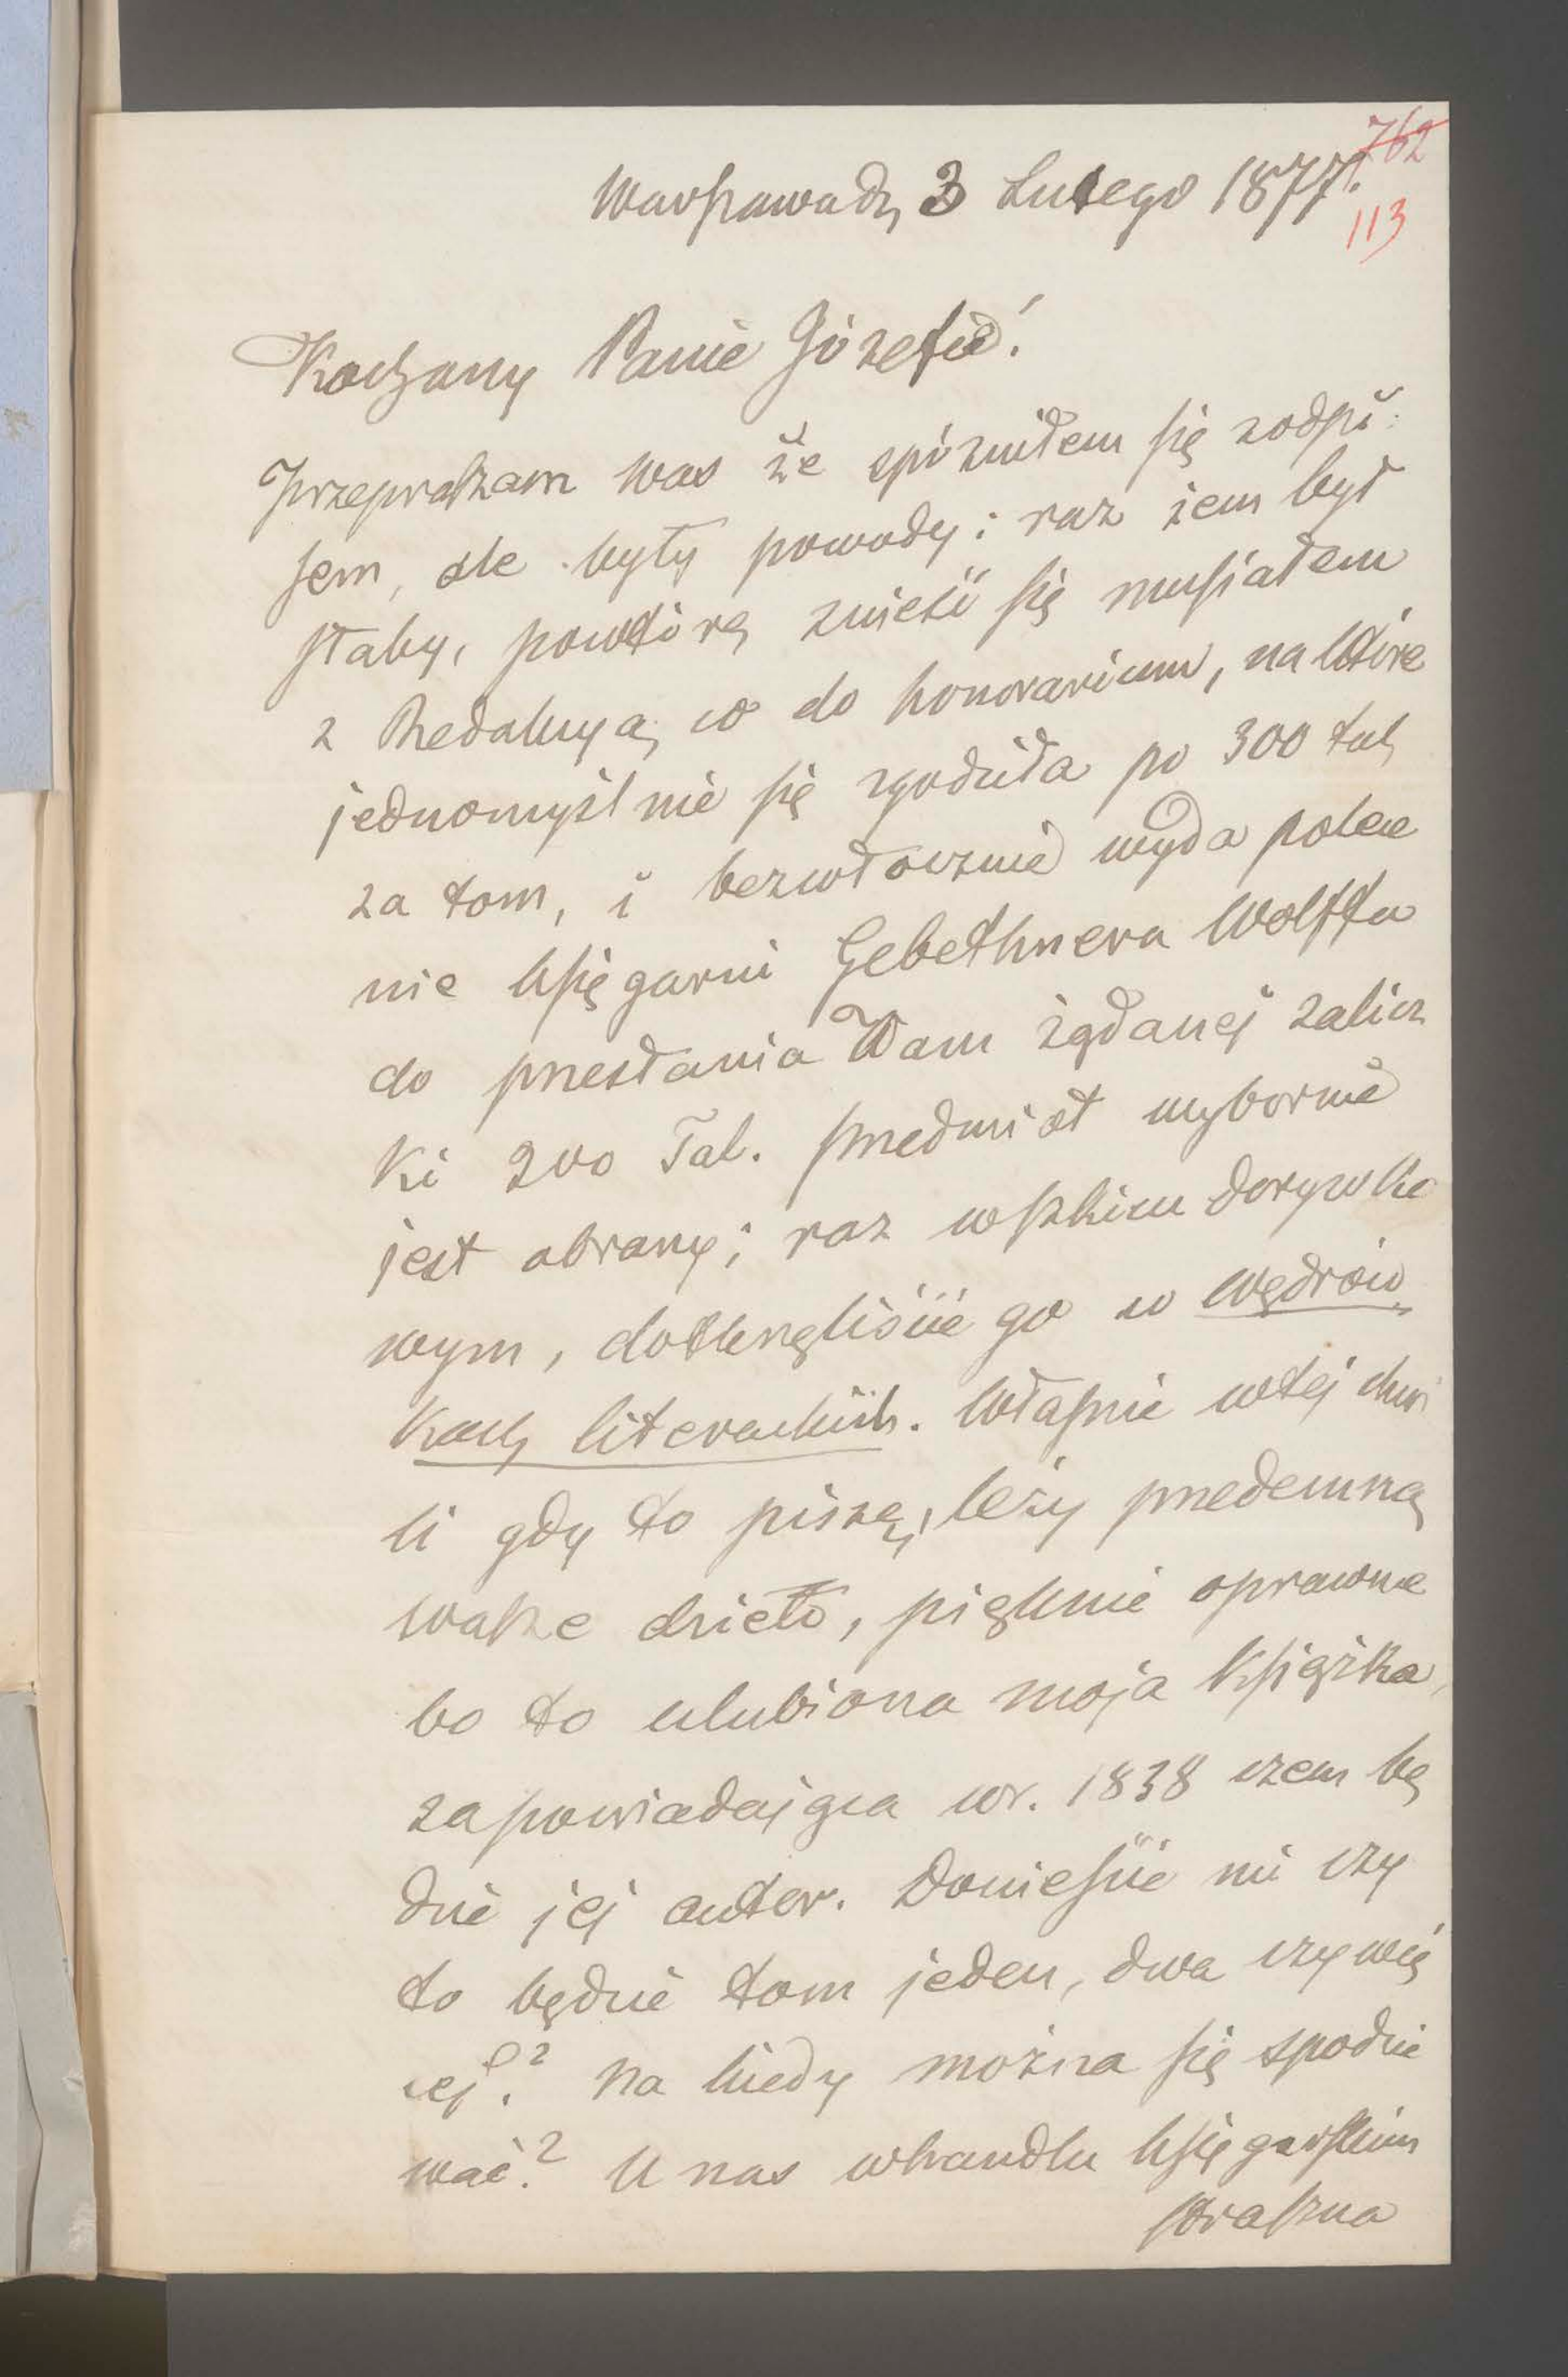 762
Warszawa d, 3 Lutego 1877.
113
Kochany Panie Józefie!
Przepraszam was że spóźniłem się z odpi:
sem, ale były powody: raz żem był
słaby, powtórę znieść się musiałem
z Redakcyą, co do honorarium, na które
jednomyślnie się zgodziła po 300 tal,
za tom, i bezwłocznie wyda polece
nie księgarni Gebethnera Wolffa
do przesłania Wam żądanej zalicz
ki 200 Tal. Przedmiot wybornie
jest obrany; raz w szkicu dorywko
wym, dotknęliście go w Wędrów
kach literackich. Właśnie w tej chwi
li gdy to piszę, leży przedemną
wasze dzieło, pięknie oprawne
bo to ulubiona moja książka,
zapowiadająca w r. 1838 czem bę
dzie jej autor. Donieście mi czy
to będzie tom jeden, dwa czy wię
cej? Na kiedy można się spodzie
wać? U nas w handlu księgarskim
straszna